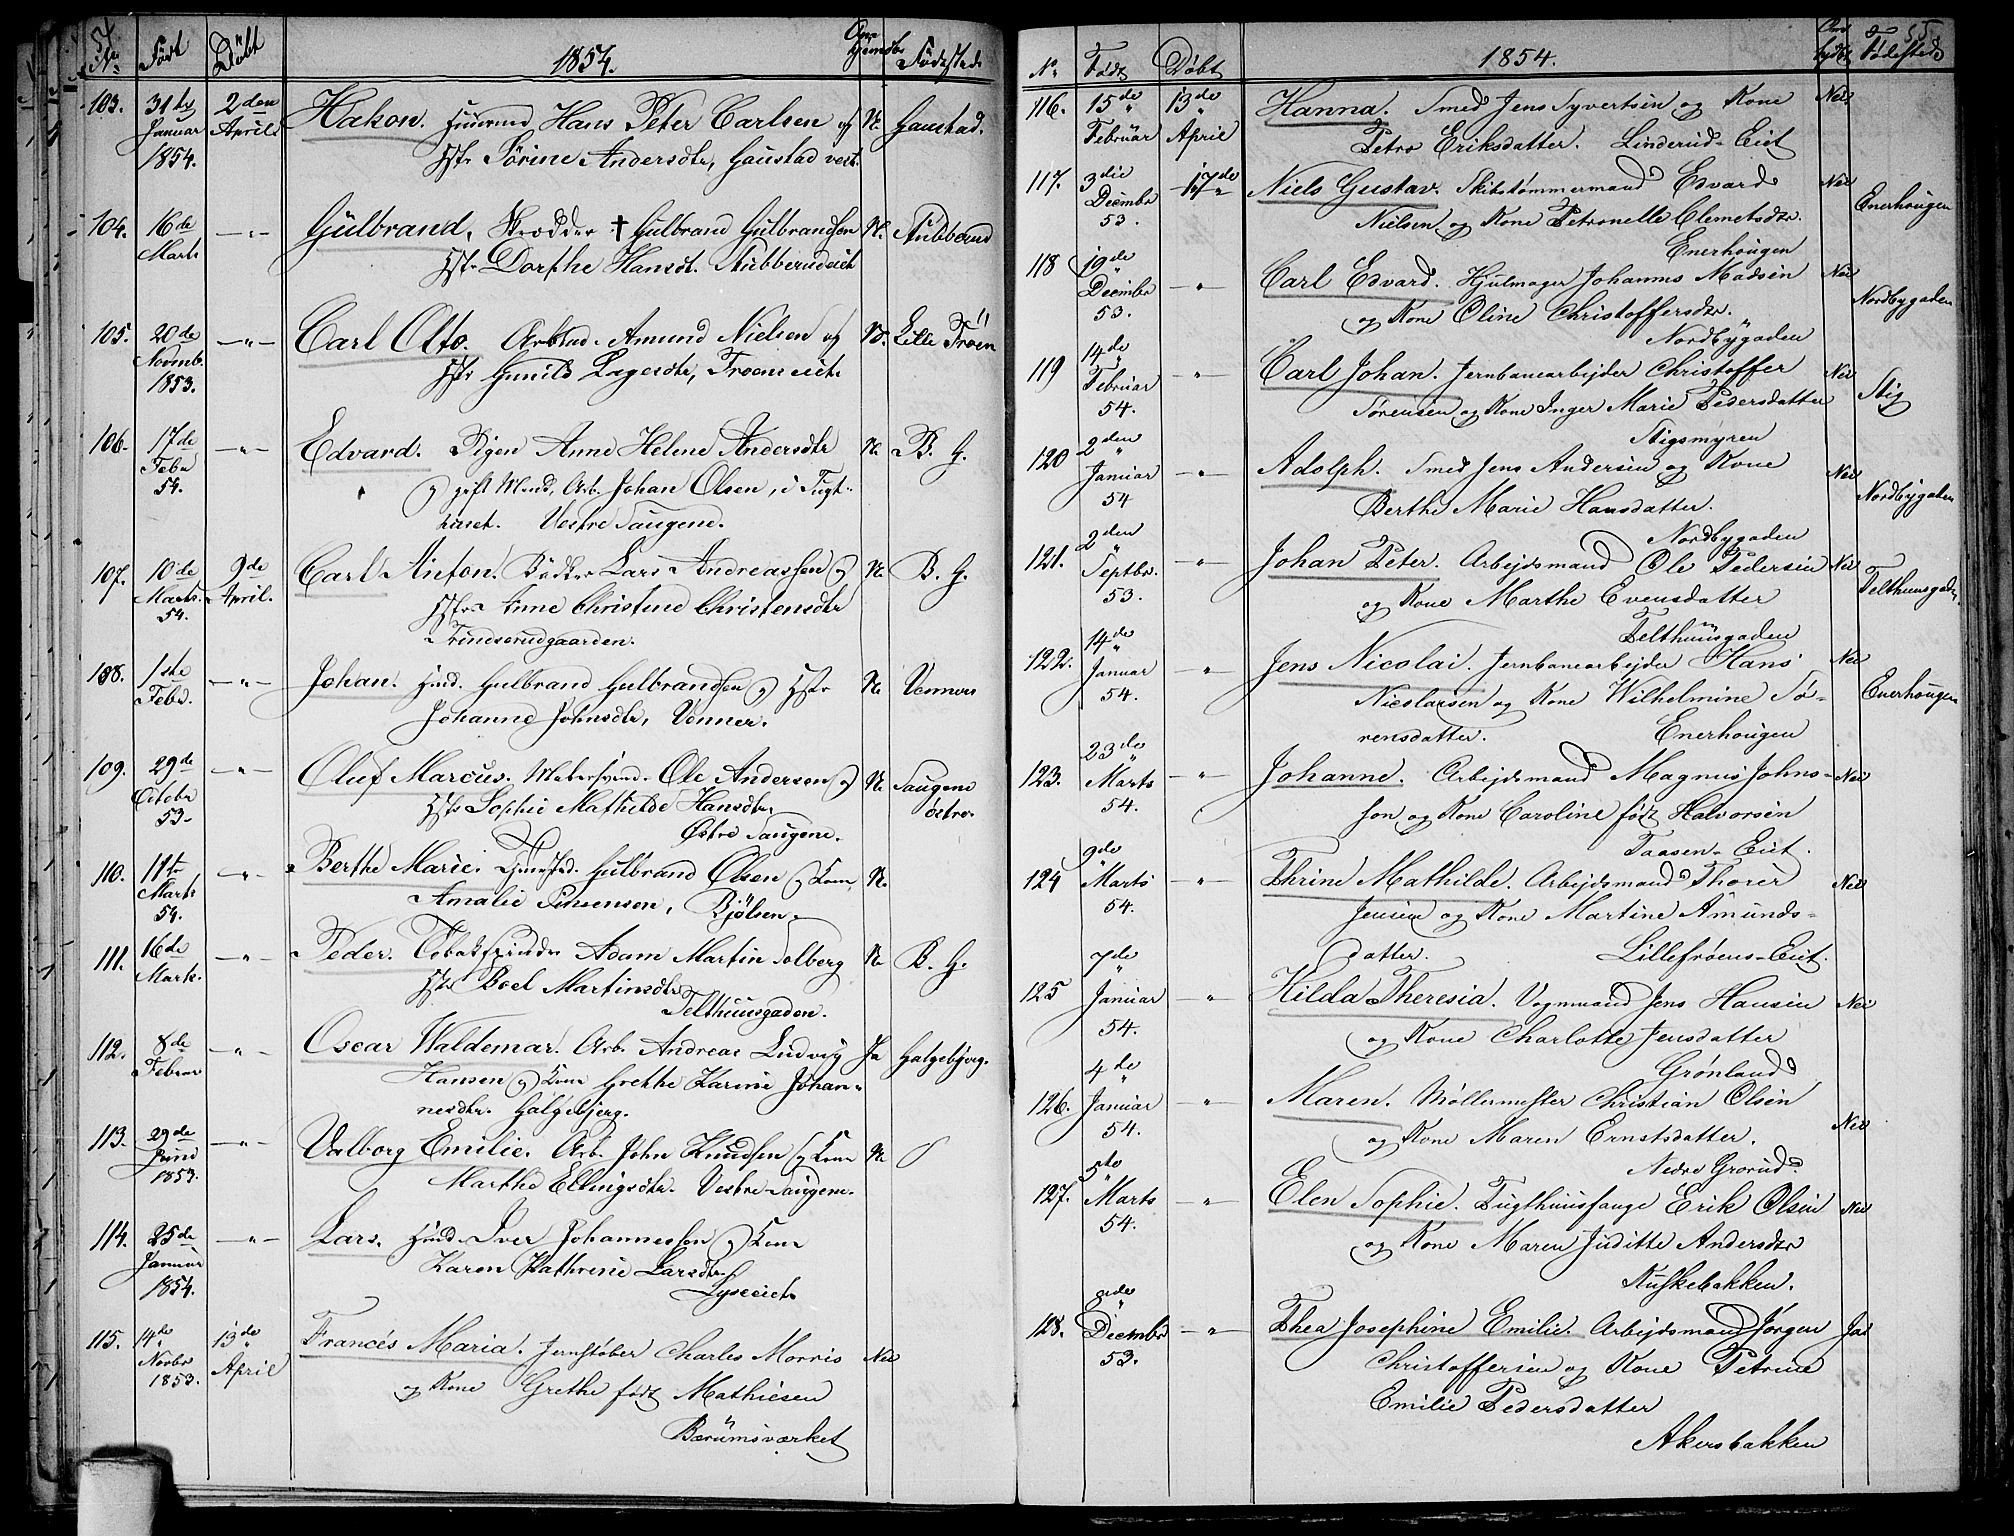 54
No
Født
Døbt
1854.
Om hjemdbt
Fødested
103. 31te Januar 1854. 2den April Hakon. Huusmd Hans Peter Carlsen og N. Gaustad.
Hstr Sørine Andersdtr, Gaustad vest.
104. 16de Marts -"- Gulbrand, Skrædder † Gulbrand Gulbrandsen N. Stubberud
Hstr Dorthe Hansdt. Stubberudeiet
105. 20de Novmb. 1853. -"- Carl Otto. Arbmd. Amund Nielsen og N. Lille Frøen
Hstr Gunild Lagesdtr, Frøenseiet
106. 17de Febr 54. -"- Edvard. Pigen Anne Helene Andersdtr N. B. G.
og gift Mand, Arb. Johan Olsen, i Tugt-
huset. Vestre Saugene.
107. 10de Marts. 54. 9de April. Carl Anton. Bødker Lars Andreassen og N. B. G.
Hstr Anne Christine Christensdtr
Trindserudgaarden.
108. 1ste Febr. -"- Johan. Hmd. Gulbrand Gulbrandsen og Hstr N. Venner
Johanne Johnsdtr, Venner.
109. 29de Octobr 53. -"- Oluf Marcus. Malersvend. Ole Andersen og N. Saugene østre
Hstr Sophie Mathilde Hansdtr
Østre Saugene.
110. 11te Marts 54. -"- Berthe Marie. Gulbrand Olsen og Kone N.
Amalie, Bjølsen.
111. 16de Marts. -"- Peder. Tobakspinder Adam Martin Solberg N. B. G.
Hstr Boel Martinsdtr
Telthuusgaden.
112. 8de Februar -"- Oscar Waldemar. Arb. Andreas Ludvig Ja Galgebjerg.
Hansen og Kone Grethe Karine Johan-
nesdtr. Galgebjerg.
113. 29de Juni 1853. -"- Valborg Emilie. Arb. John Knudsen og Kone N.
Marthe Ellingsdtr. Vestre Saugene.
114. 25de Januar 1854. -"- Lars. Hmd. Iver Johannessen og Kone
Karen Kathrine Larsdtr.
Lyseeiet
115. 14de Novbr 1853. 13de April Francés Maria. Jernstøber Charles Morris Nei
og Kone Grethe født Mathiesen
Bærumsværket
55
No
Født
Døbt
1854.
Fødested
116. 15de Februar 13de April Hanna. Smed Jens Syvertsen og Kone Nei
Petro Eriksdatter. Linderud-Eiet
117. 3die Decembr 53. 17de Niels Gustav. Skibstømmermand Edvard Nei Enerhougen
Nielsen og Kone Petronelle Clemetsdtr.
Enerhougen
118 19de Decembr 53. -"- Carl Edvard. Hjulmager Johannes Madsen Nei Nordbygaden
og Kone Oline Christoffersdtr.
Nordbygaden
119 14de Februar 54. -"- Carl Johan. Jernbanearbejder Christoffer Nei Stig
Sørensen og Kone Inger Marie Pedersdatter
Stigsmyren
120 2den Januar 54 -"- Adolph. Smed Jens Andersen og Kone Nei Nordbygaden
Berthe Marie Hansdatter.
Nordbygaden
121. 2den Septbr. 53. -"- Johan Peter. Arbejdsmand Ole Pedersen Nei Telthuusgaden
og Kone Marthe Evensdatter
Telthuusgaden
122. 14de Januar 54. -"- Jens Nicolai. Jernbanearbejder Hans Nei Enerhougen
Nicolaisen og Kone Wilhelmine Sø-
rensdatter. Enerhougen
123. 23de Marts 54. -"- Johanne. Arbejdsmand Magnus Johns- Nei
son og Kone Caroline født Halvorsen
Taasen-Eiet.
124 9de Marts 54. -"- Thrine Mathilde. Arbejdsmand Thorer Nei
Jensen og Kone Martine Amunds-
datter. Lillefrøens-Eiet.
125 7de Januar 54. -"- Hilda Theresia. Vognmand Jens Hansen Nei
og Kone Charlotte Jensdatter
Grønland
126. 4de Januar 54. -"- Maren. Møllermester Christian Olsen Nei
og Kone Maren Ernstsdatter.
Nedre Grorud.
127. 5te Marts 54. -"- Elen Sophie. Tugthuusfange Erik Olsen Nei
og Kone Maren Juditte Andersdtr
Kuskebakken.
128. Decembr 53. -"- Thea Josephine Emilie. Arbejdsmand Jørgen Ja
Christoffersen og Kone Petrine
Emilie Pedersdatter
Akersbakken